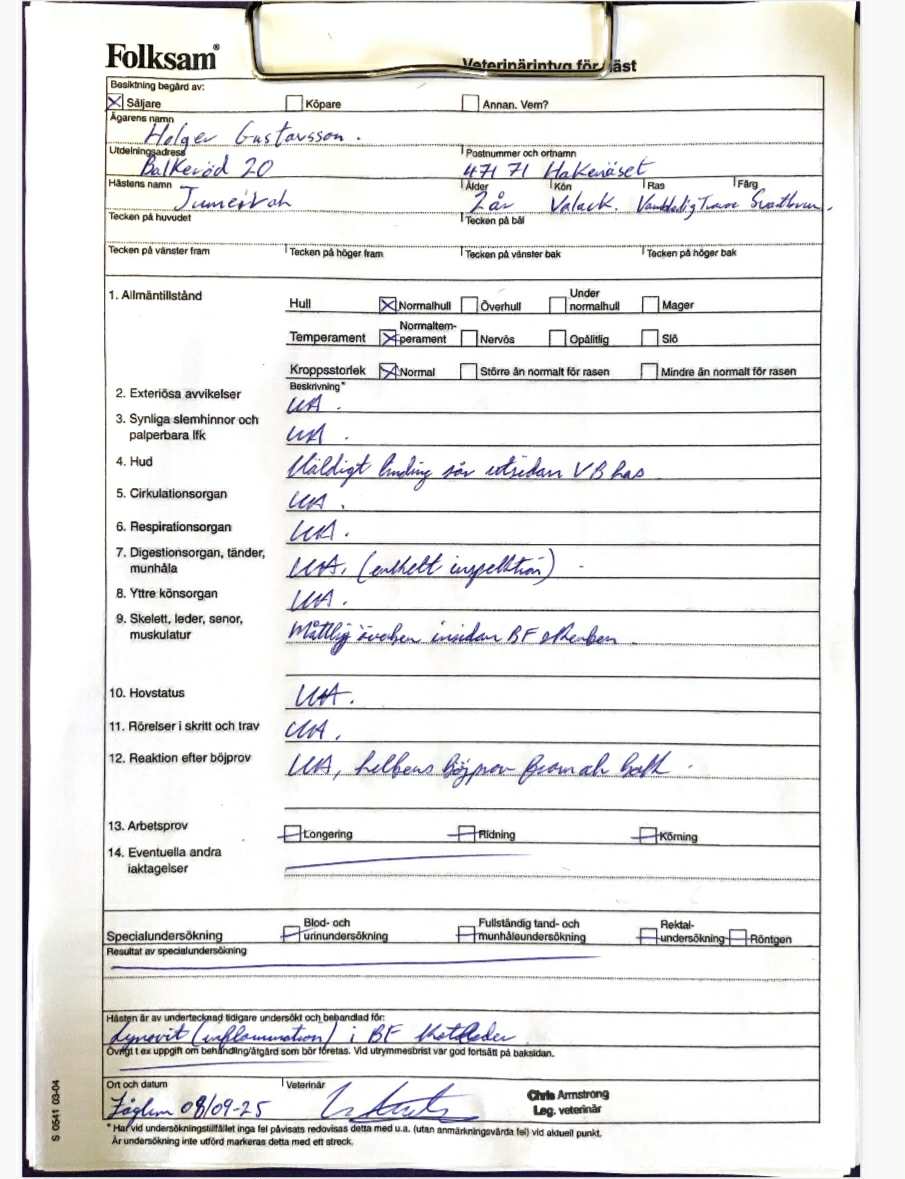 Folksam®
Veterinärintyg för häst
Besiktning begärd av:
Säljare Köpare Annan. Vem?
Ägarens namn
Holger Gustavsson.
Utdelningsadress Postnummer och ortnamn
Balkeröd 20 471 71 Hakenäset
Hästens namn Ålder Kön Ras Färg
2 år Valack. Varmblodig Trav Svartbrun.
Tecken på huvudet Tecken på bål
Tecken på vänster fram Tecken på höger fram Tecken på vänster bak Tecken på höger bak
1. Allmäntillstånd
Hull Normalhull Överhull Under normalhull Mager
Temperament Normaltem-perament Nervös Opålitlig Slö
Kroppsstorlek Normal Större än normalt för rasen Mindre än normalt för rasen
Beskrivning*
2. Exteriösa avvikelser UA.
3. Synliga slemhinnor och
palperbara lfk UA.
4. Hud Väldigt lindrig sår utsidan VB has
5. Cirkulationsorgan UA.
6. Respirationsorgan UA.
7. Digestionsorgan, tänder,
munhåla UA. (enkelt inspektion)
8. Yttre könsorgan UA.
9. Skelett, leder, senor,
muskulatur Måttlig överben insidan BF skenben
10. Hovstatus UA.
11. Rörelser i skritt och trav UA.
12. Reaktion efter böjprov UA, helbens böjprov fram och bak.
13. Arbetsprov Longering Ridning Körning
14. Eventuella andra
iaktagelser
Specialundersökning Blod- och urinundersökning Fullständig tand- och munhåleundersökning Rektal-undersökning Röntgen
Resultat av specialundersökning
Hästen är av undertecknad tidigare undersökt och behandlad för:
Synovit (inflammation) i BF kotleder
Övrigt t ex uppgift om behandling/åtgärd som bör företas. Vid utrymmesbrist var god fortsätt på baksidan.
Ort och datum Veterinär
08/09-25
Chris Armstrong
Leg. veterinär
* Har vid undersökningstillfället inga fel påvisats redovisas detta med u.a. (utan anmärkningsvärda fel) vid aktuell punkt.
Är undersökning inte utförd markeras detta med ett streck.
S 0541 03-04